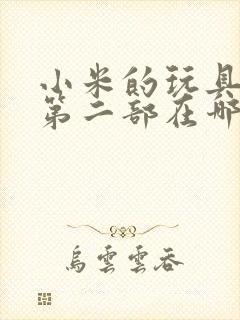 小米的玩具
第二部在哪
烏雲雲吞